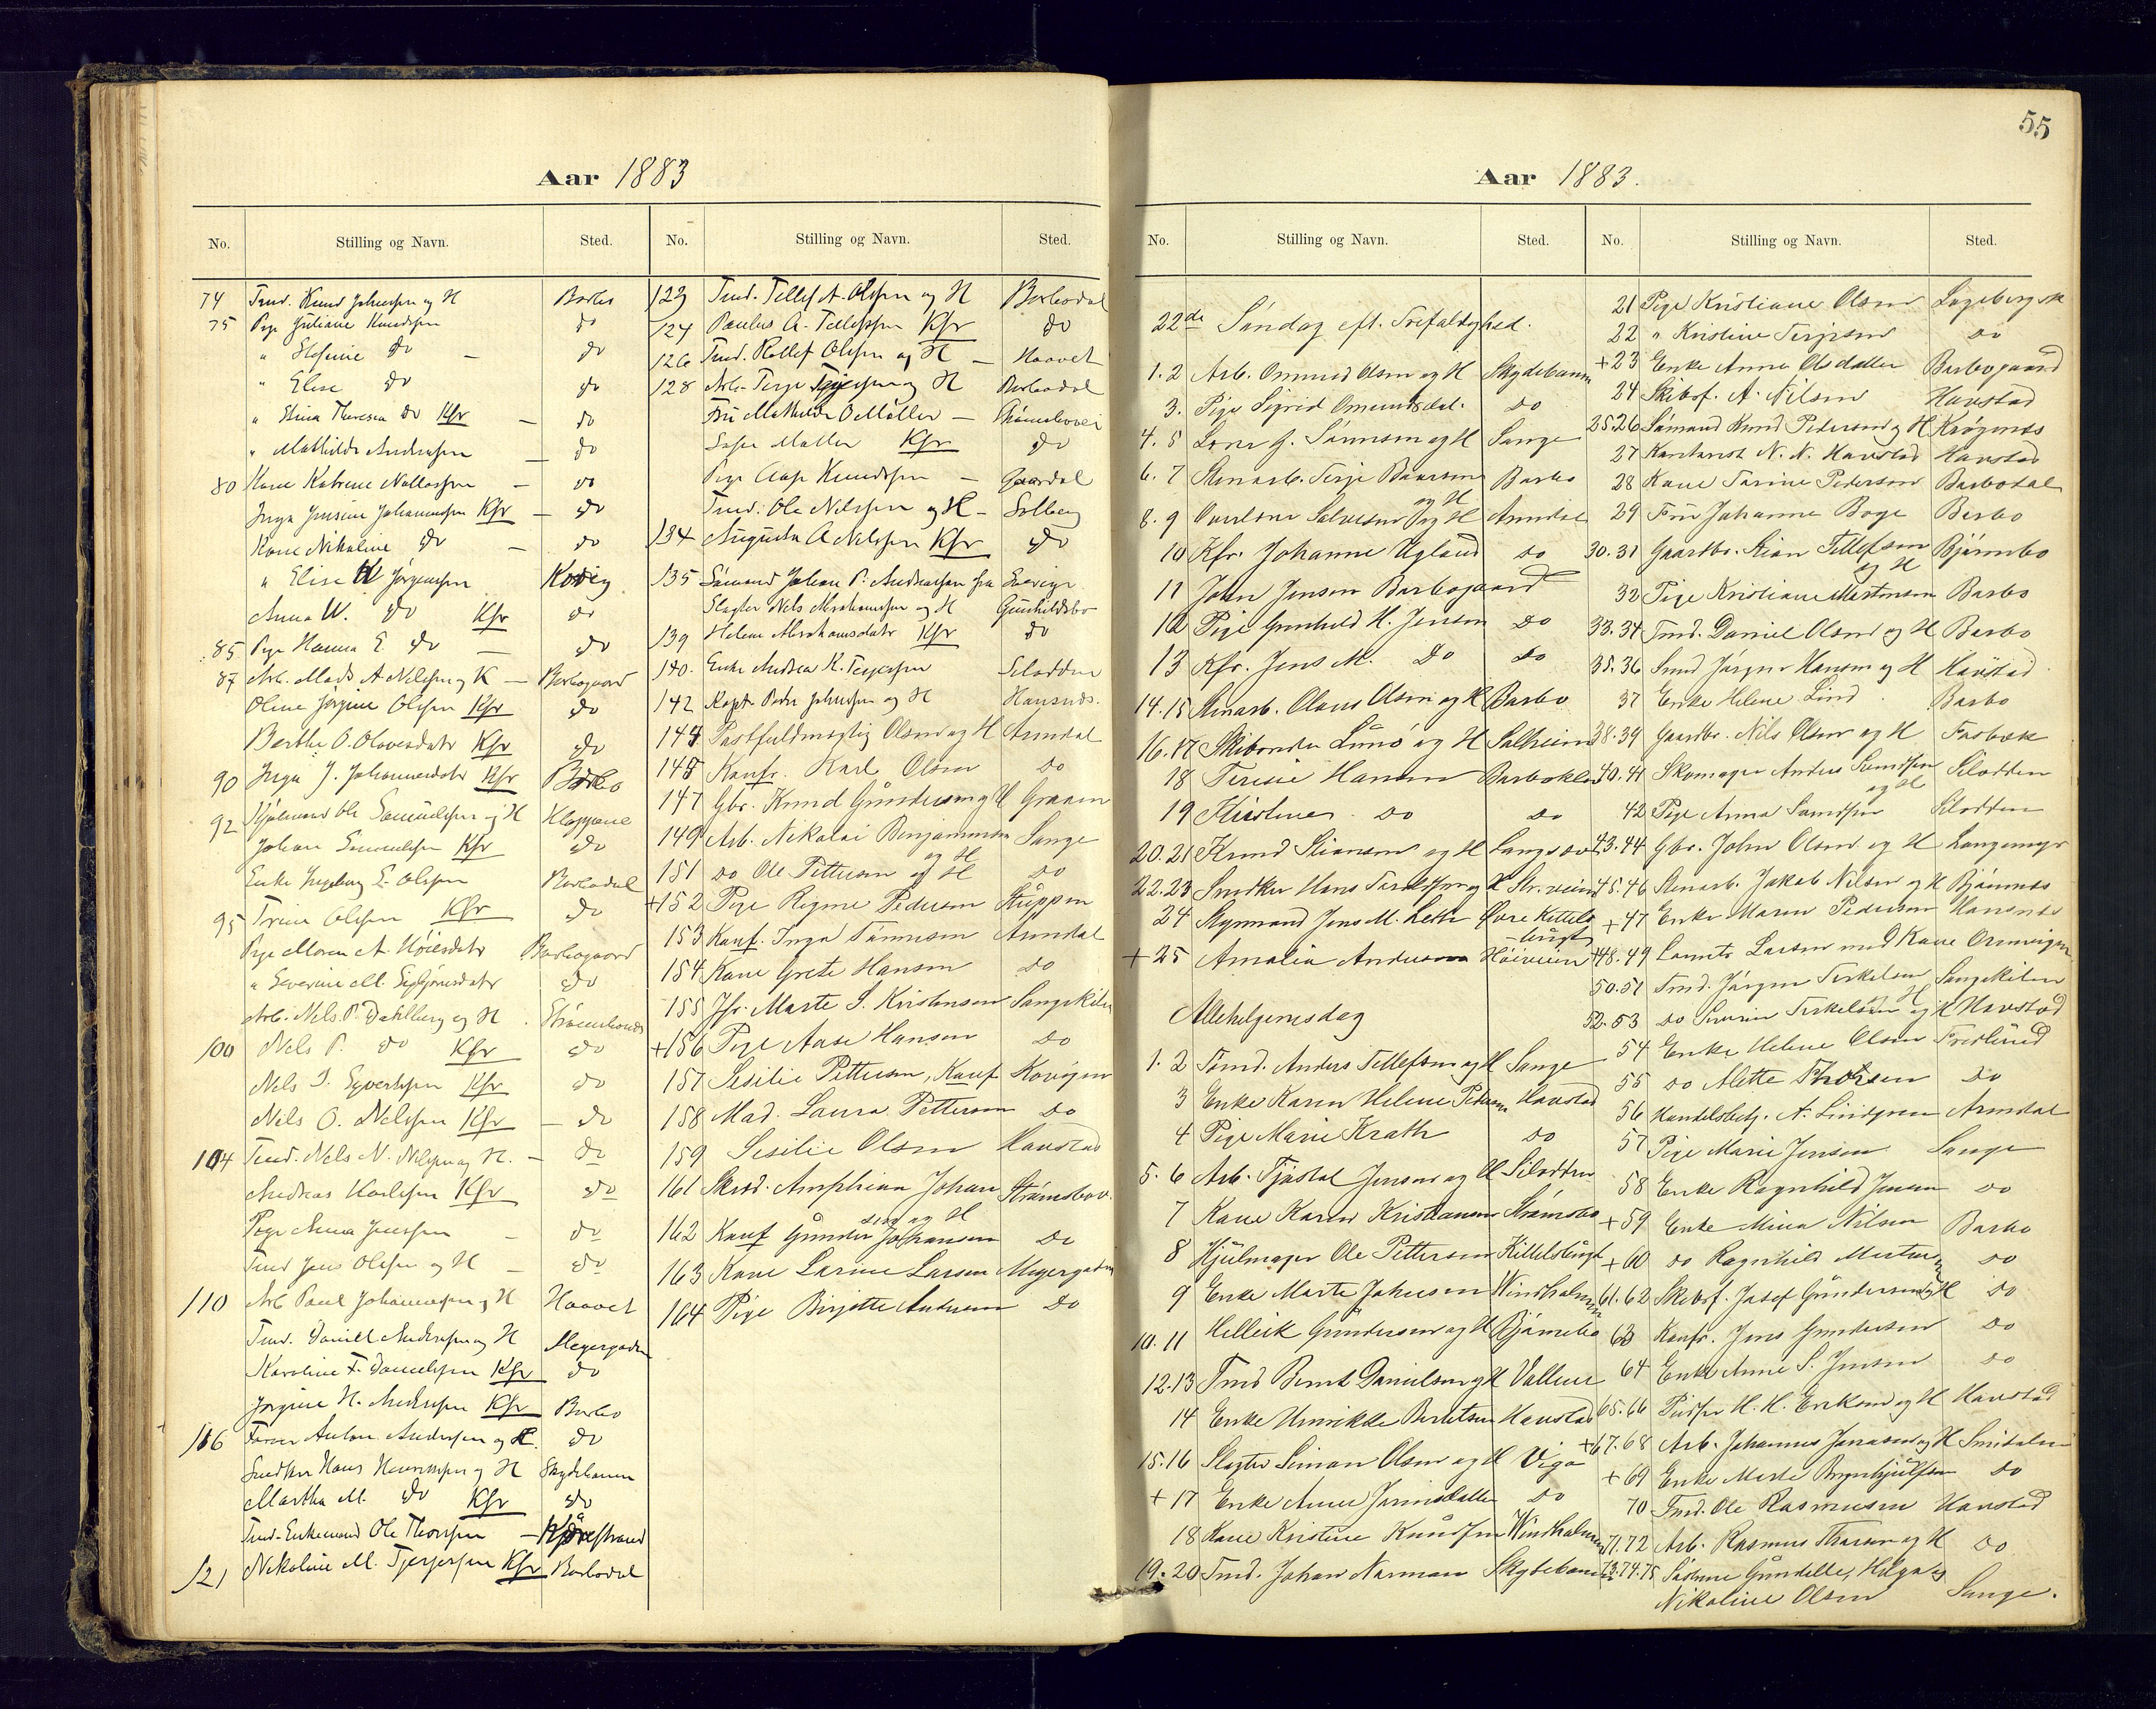 Aar 1883
No. Stilling og Navn. Sted.
74 Tmd. Knud Johnsen og H Barbo
75 Pige Juliane Knudsen do
" Stefanie do — do
" Elise do do
" Stina Theresia do Kfr — do
" Mathilde Andersen — do
80 Kone Katrine — do
Inga Jensine Johannessen Kfr — do
Kone Nikoline do — do
" Elise Jørgensen Kovig
Anna W. do Kfr do
85 Pige Hanna E. do — do
87 Arb. Mads A Nilsen og H — Barbogaard
Oline Jørgine Olsen Kfr do
Berthe O. Olovesdatr Kfr do
90 Inga J. Johannesdatr Kfr Barbo
92 Ole Samuelsen og H Kloppene
Johan Samuelsen Kfr do
Enke Ingeborg E. Olsen Barbodal
95 Trine Olsen Kfr do
Pige Maren A. Barbogaard
" Severine M. do
Arb. Nils P. Dahlberg og H
100 Nels P. do Kfr do
Nels S. Kfr do
Nels O. Nelsen Kfr — do
104 Tmd. Nels N. Nilsen og H. — do
Andreas Karlsen Kfr do
Pige Anna Jensen — do
Tmd Jens Olsen og H — do
110 Arb Paul Johannesen og H Haavet
Tmd. Daniel Andersen og H Meyergaden
Karoline F. Danielsen Kfr do
Jørgine H. Andersen Kfr Barbo
116 Anton Andersen og H. do
Snedker Hans og H Skydebanen
Martha M. do Kfr do
Tmd. Enkemand Ole Thorsen —
121 Nikoline M. Terjesen Kfr Barbodal
No. Stilling og Navn. Sted.
123 Tmd. Tellef A. Olsen og H Barbodal
124 Paulus A. Tellefsen Kfr do
126 Tmd. Rollef Olsen og H — Haavet
128 Arb. Terje Terjesen og H Barbodal
Fru Mathilde O Møller —
Sofie Møller Kfr do
Pige Aase Knudsen — Gaardal
Tmd. Ole Nilssen og H — Solberg
134 Augusta A Nilsen Kfr do
135 Sømand Johan P. Andreasen fra Sverige
Slagter Nils Abrahamsen og H Gunhildsbo
139 Helene Abrahamsdatr Kfr do
140. Enke Andrea K. Terjesen Selodden
142 Kapt. Peder Johnsen og H Hansnæs.
144 Postfuldmægtig Olsen og H Arendal
145 Konfr. Karl Olsen do
147 Gbr. Knud Gundersen og H Graam
149 Arb. Nikolai Benjaminsen og H Sange
151 do Ole Pettersen og H do
+152 Pige Regine Pedersen
153 Konf. Inga Tønnesen Arendal
154 Kone Grete Hansen do
155 Jfr. Marte S. Kristensen Sangekilen
+156 Pige Aase Hansen do
157 Sesilie Pettersen, Konf Kovigen
158 Mad. Laura Pettersen do
159 Sesilie Olsen Havstad
161 Skrd. Amphion Johansen og H Strømsbov.
162 Konf Gunder Johansen do
163 Kone Larine Larsen Meyergaden
164 Pige Birgitte Andersen do
55
Aar 1883.
No. Stilling og Navn. Sted.
22de Søndag eft. Trefoldighed.
1. 2 Arb. Ommund Olsen og H Skydebanen
3. Pige Sigrid Omundsdat. do
4. 5 J. Tønnesen og H Sange
6. 7 Stenarb. Terje Baarsen og H Barbo
8. 9 Salvesen og H Arendal
10 Kfr. Johanne Ugland do
11 John Jensen Barbogaard
12 Pige Gunhild H. Jensen do
13 Kfr. Jens M. do do
14.15 Stenarb. Olaus Olsen og H Barbo
16.17 Skibsreder Lunø og H Solheim
18 Teresie Hansen
19 Kristine do do
20.21 Knud Stiansen og H
22.23 Snedker Hans og H
24 Styrmand Jens M. Leth Øvre Kittels-
bugt
+25 Amalia Andersen Høiveien
Allehelgensdag
1. 2 Tømd. Anders Tellefsen og H Sange
3 Enke Karen Helene Pedersen Havstad
4 Pige Marie Krath do
5. 6 Arb. Tjøstol Jensen og H Selodden
7 Kone Karen Kristiansen Strømsbo
8 Hjulmager Ole Pettersen Kittelsbugt
9 Enke Marte Johnsen Windholmen
10. 11 Helleik Gundersen og H Bjørnebo
12.13 Tmd Bernt Danielsen og H Vollene
14 Enke Henrikke Berntsen Havstad
15.16 Slagter Simon Olsen og H Viga
+ 17 Enke Anne do
18 Kone Kristine Knudsen Windholmen
19.20 Tmd. Johan Narman Skydebanen
No. Stilling og Navn. Sted.
21 Pige Kristiane Olsen
22 " Kristine Terjesen do
+23 Enke Anne Olsdatter Barbogaard
24 Skibsf. A. Nilsen Havstad
25.26 Sømand Knud Pedersen og H Krøgenes
27 N. N. Havstad Havstad
28 Kone Tarine Pedersen Barbodal
29 Fru Johanne Boge Barbo
30.31 Gaardbr. Stian Tellefsen og H Bjørnebo
32 Pige Kristiane Mortensen Barbo
33.34 Tmd. Daniel Olsen og H Barbo
35.36 Smed Jørgen Hansen og H Havstad
37 Enke Helene Lind Barbo
38.39 Gaardbr. Nils Olsen og H Farbæk
40.41 Skomager Anders Samdsen og H Selodden
42 Pige Anna Samdsen Selodden
43.44 Gbr. John Olsen og H Langemyr
45.46 Stenarb. Jakob Nilsen og H Bjønnes
+47 Enke Maren Pedersen Hansnæs
+48.49 Larsen med Kone
50.51 Tmd. Jørgen Terkelsen H Sangekilen
52.53 do Severin Terkelsen og H Havstad
54 Enke Helene Olsen Fredlund
55 do Alette Thorsen do
56 Handelsbetj. A. Lindgren Arendal
57 Pige Marie Jensen Sange
58 Enke Ragnhild Jensen do
+59 Enke Mina Nilsen Barbo
+60 do Ragnhild do
61.62 Skibsf. Josef Gundersen og H do
63 Konfr. Jens Gundersen do
64 Enke Anne S. Jensen do
65.66 H. H. Eriksen og H Havstad
+67.68 Arb. Johannes Jonassen og H Smedalen
+69 Enke Marte Brynhjulfsen do
70 Tmd. Ole Rasmussen Havstad
71.72 Arb. Rasmus Thorsen og H do
73.74.75 Søstrene Gundelle, Helga og
Nikoline Olsen Sange.